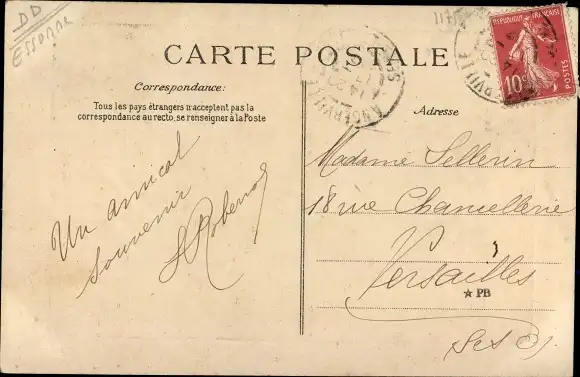 DD
ESSONNE
117
CARTE POSTALE
REPUBLIQUE FRANÇAISE
10c
POSTES
ANGERVILLE
Correspondance:
Tous les pays étrangers n'acceptent pas la
correspondance au recto, se renseigner à la Poste
Adresse
Un amical
souvenir
Madame Sellerin
18 rue Chancellerie
Versailles
★ PB
S et O